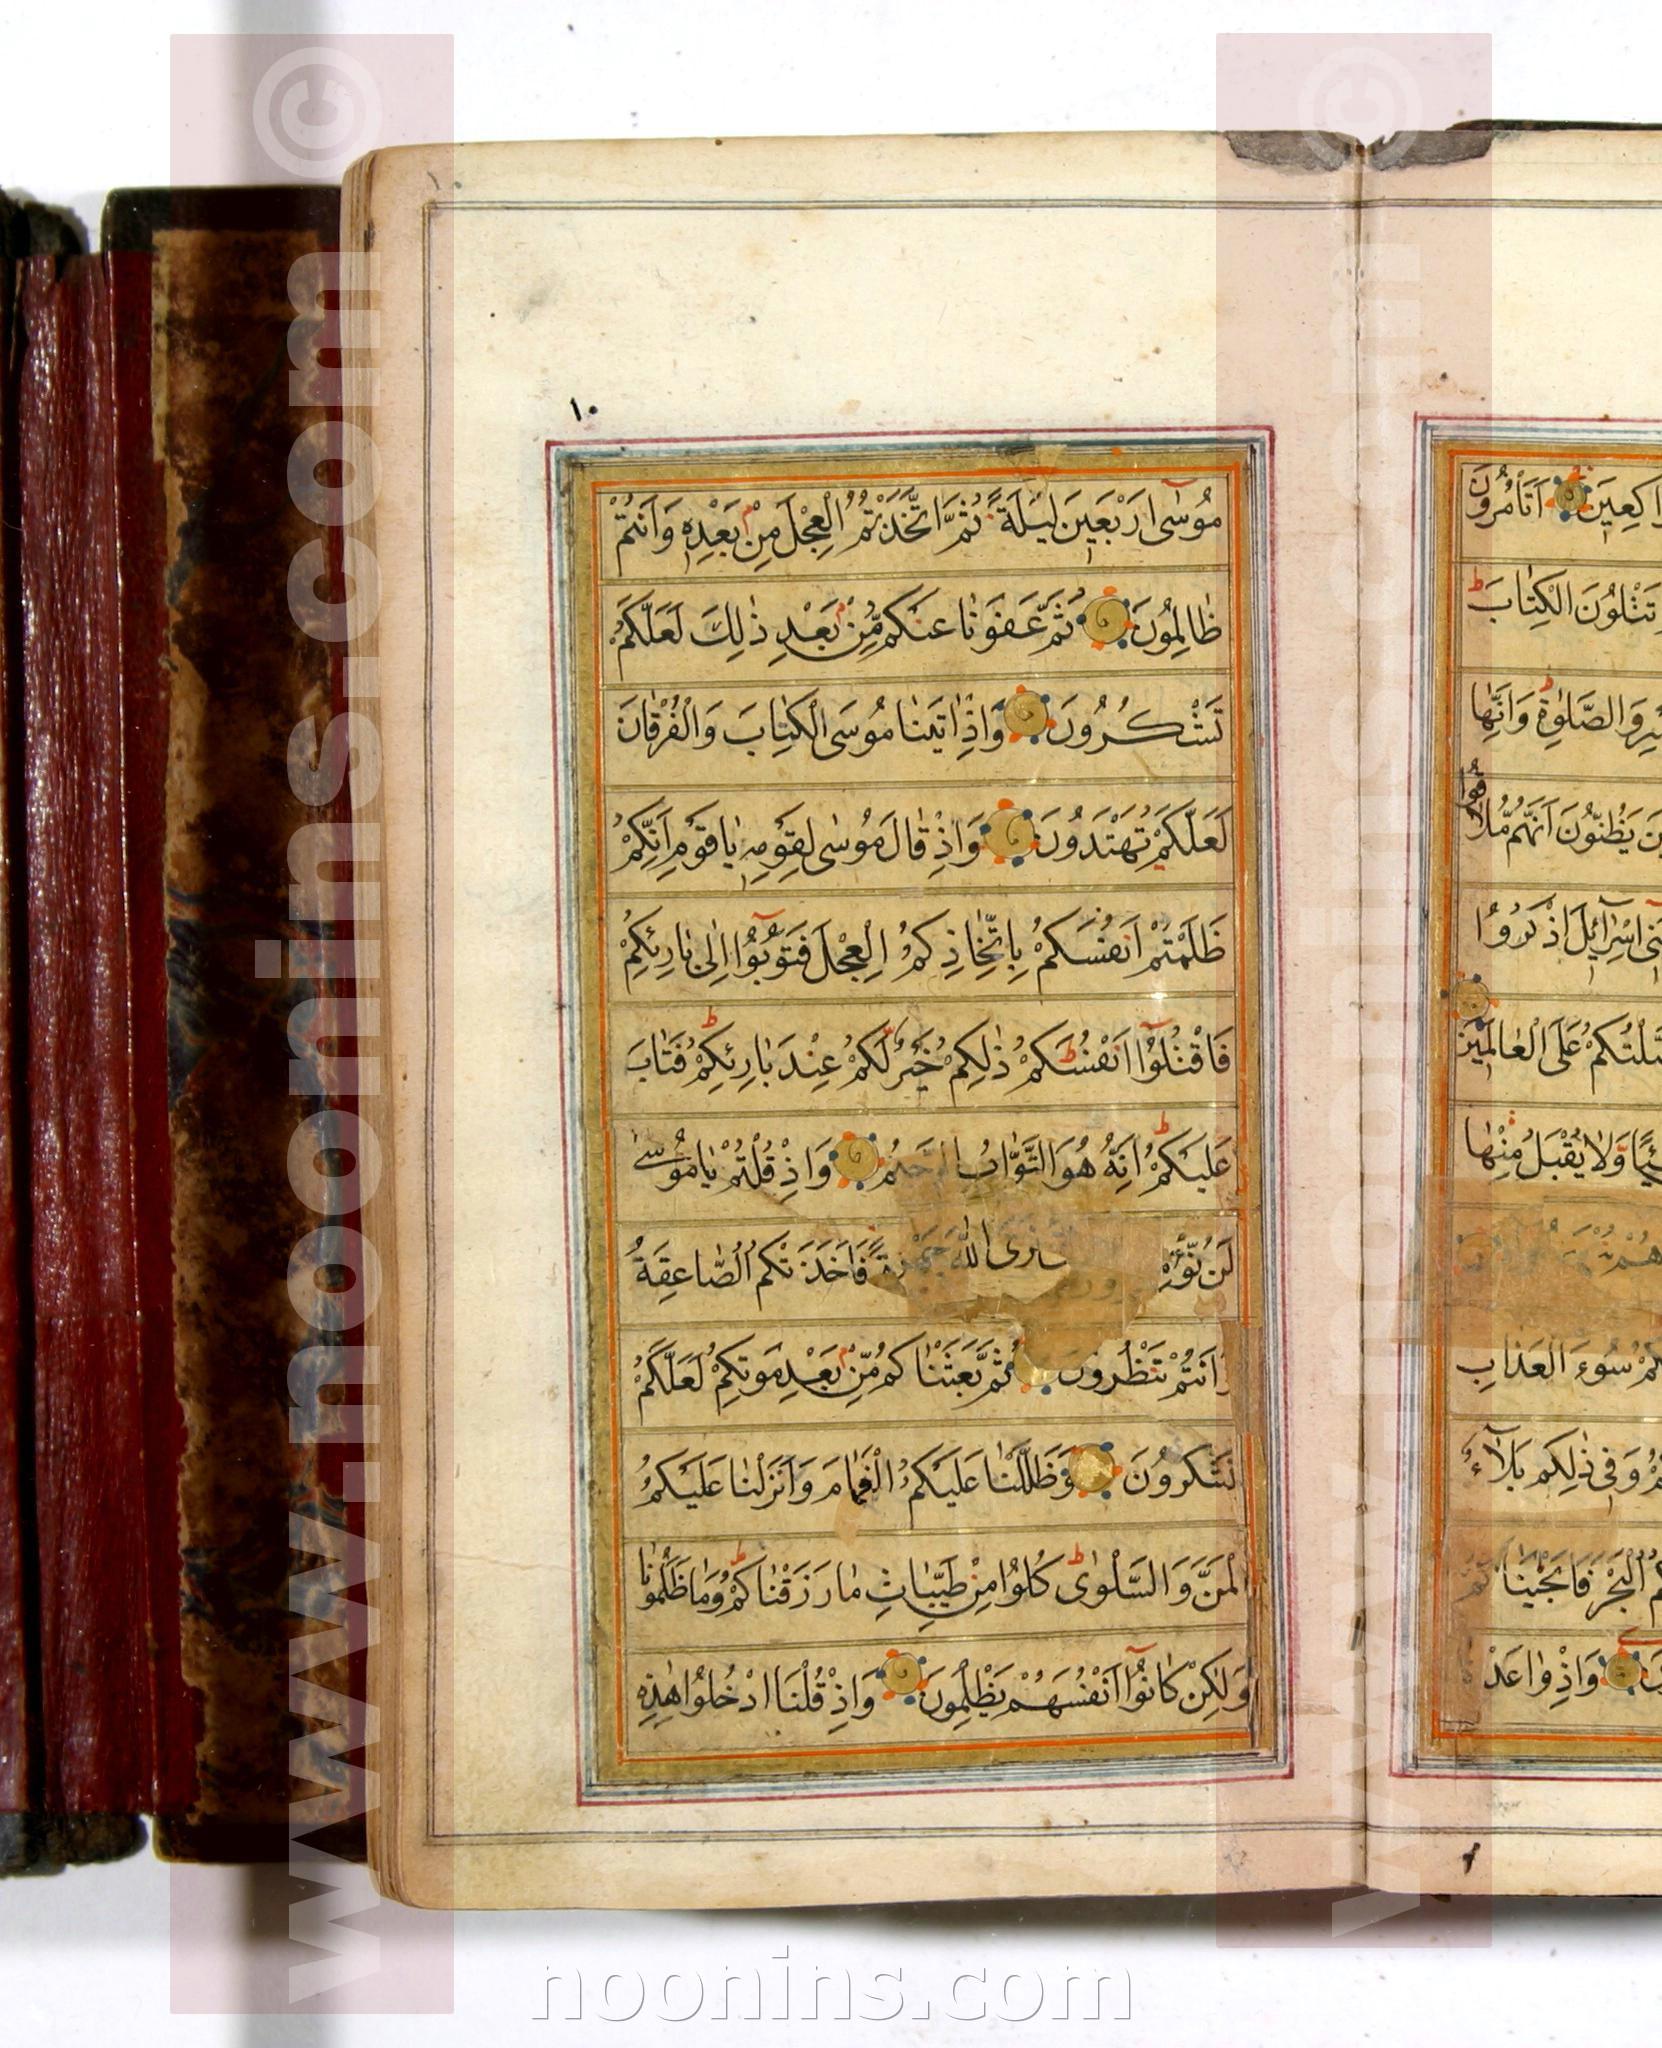 www.noonins.com ©
www.noonins.com ©
۱۰
مُوسٰٓى اَرْبَعِينَ لَيْلَةً ثُمَّ اتَّخَذْتُمُ الْعِجْلَ مِنْ بَعْدِهٖ وَاَنْتُمْ
ظٰالِمُونَ ثُمَّ عَفَوْنٰا عَنْكُمْ مِّنْ بَعْدِ ذٰلِكَ لَعَلَّكُمْ
تَشْكُرُونَ وَاِذْ اٰتَيْنٰا مُوسَى الْكِتٰابَ وَالْفُرْقٰانَ
لَعَلَّكُمْ تَهْتَدُونَ وَاِذْ قٰالَ مُوسٰى لِقَوْمِهٖ يٰا قَوْمِ اِنَّكُمْ
ظَلَمْتُمْ اَنْفُسَكُمْ بِاتِّخٰاذِكُمُ الْعِجْلَ فَتُوبُوٓا اِلٰى بٰارِئِكُمْ
فَاقْتُلُوٓا اَنْفُسَكُمْ ذٰلِكُمْ خَيْرٌ لَّكُمْ عِنْدَ بٰارِئِكُمْ فَتٰابَ
عَلَيْكُمْ اِنَّهُ هُوَ التَّوّٰابُ الرَّحيمُ وَاِذْ قُلْتُمْ يٰا مُوسٰى
لَنْ نُؤْمِنَ نَرَى اللّٰهَ جَهْرَةً فَاَخَذَتْكُمُ الصّٰاعِقَةُ
وَاَنْتُمْ تَنْظُرُونَ ثُمَّ بَعَثْنٰاكُمْ مِّنْ بَعْدِ مَوْتِكُمْ لَعَلَّكُمْ
تَشْكُرُونَ وَظَلَّلْنٰا عَلَيْكُمُ الْغَمٰامَ وَاَنْزَلْنٰا عَلَيْكُمُ
الْمَنَّ وَالسَّلْوٰى كُلُوا مِنْ طَيِّبٰاتِ مٰا رَزَقْنٰاكُمْ وَمٰا ظَلَمُونٰا
وَلٰكِنْ كٰانُوٓا اَنْفُسَهُمْ يَظْلِمُونَ وَاِذْ قُلْنَا ادْخُلُوا هٰذِهِ
اكِعِينَ اَتَأْمُرُونَ
تَتْلُونَ الْكِتٰابَ
وَالصَّلٰوةِ وَاِنَّهٰا
يَظُنُّونَ اَنَّهُمْ مُلٰاقُوا
اِسْرٰٓائِلَ اذْكُرُوا
عَلَى الْعٰالَمِينَ
وَلٰا يُقْبَلُ مِنْهٰا
سُوٓءَ الْعَذٰابِ
وَفِى ذٰلِكُمْ بَلٰٓاءٌ
الْبَحْرَ فَاَنْجَيْنٰا
وَاِذْ وٰاعَدْنٰا
noonins.com